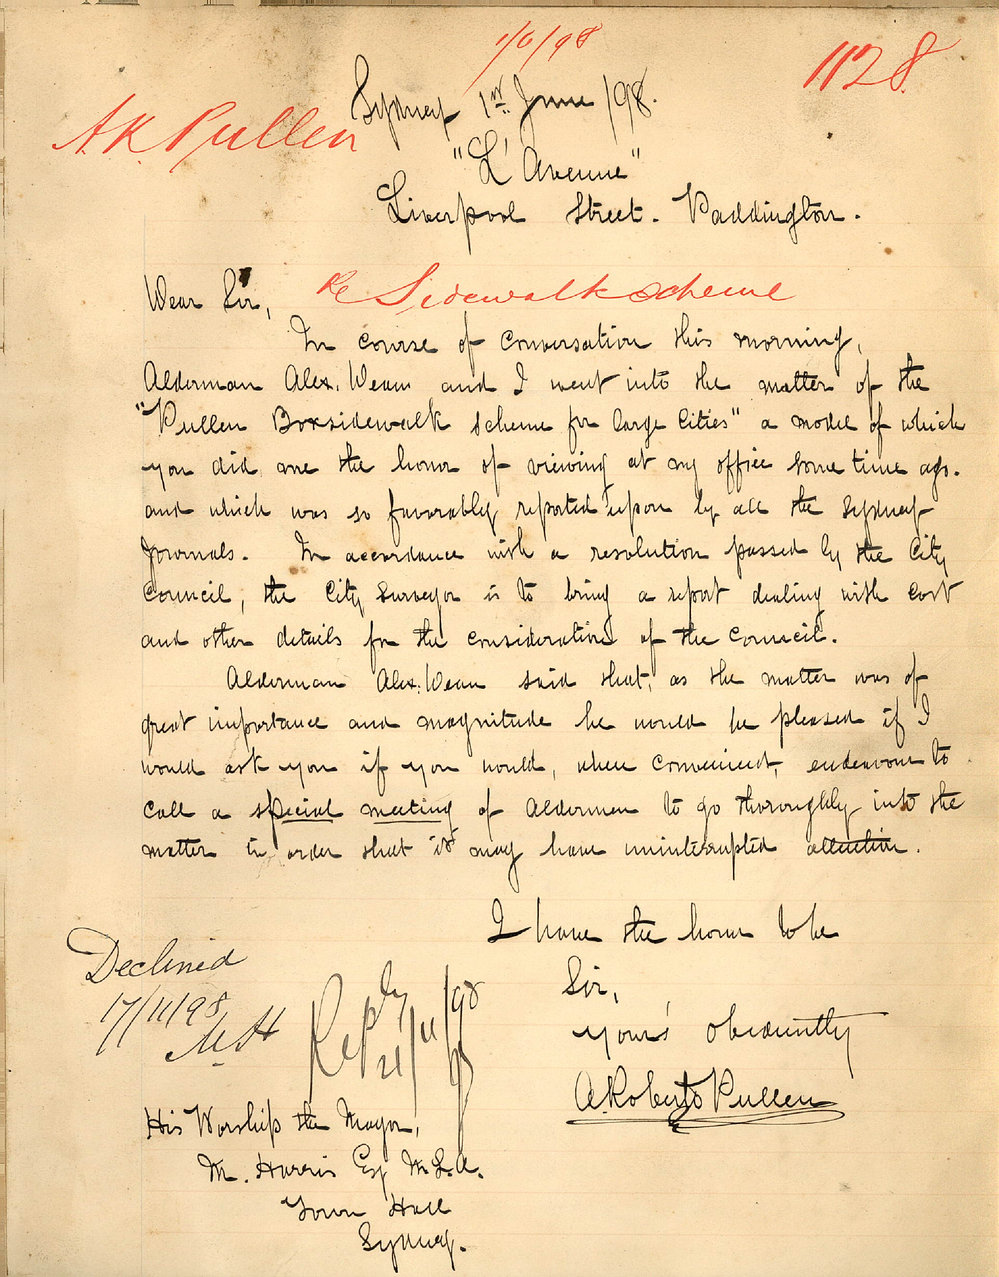 1/6/98
1128
A.K. Pullen
Sydney 1st June /98.
"L'Avenue"
Liverpool Street. Paddington.
Dear Sir,
Re Sidewalk scheme
In course of conversation this morning,
Alderman Alex. Dean and I went into the matter of the
"Pullen Boxsidewalk scheme for large Cities" a model of which
you did me the honor of viewing at my office some time ago.
and which was so favorably reported upon by all the Sydney
Journals. In accordance with a resolution passed by the City
Council, the City Surveyor is to bring a report dealing with cost
and other details for the consideration of the Council.
Alderman Alex. Dean said that, as the matter was of
great importance and magnitude he would be pleased if I
would ask you if you would, when convenient, endeavour to
call a special meeting of Aldermen to go thoroughly into the
matter in order that it may have uninterrupted attention.
I have the honor to be
Sir,
Your's obediently
A. Roberts Pullen
Declined
17/11/98
M H
Reply
21/11/98
His Worship the Mayor,
M. Harris Esq M.L.A.
Town Hall
Sydney.